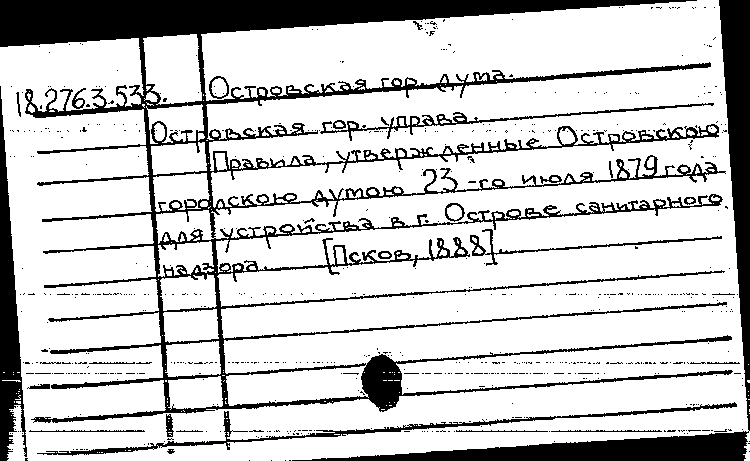 18.276.3.533. Островская гор. дума.
Островская гор. управа.
Правила, утвержденные Островскою
городскою думою 23-го июля 1879 года
для устройства в г. Острове санитарного
надзора. [Псков, 1888].